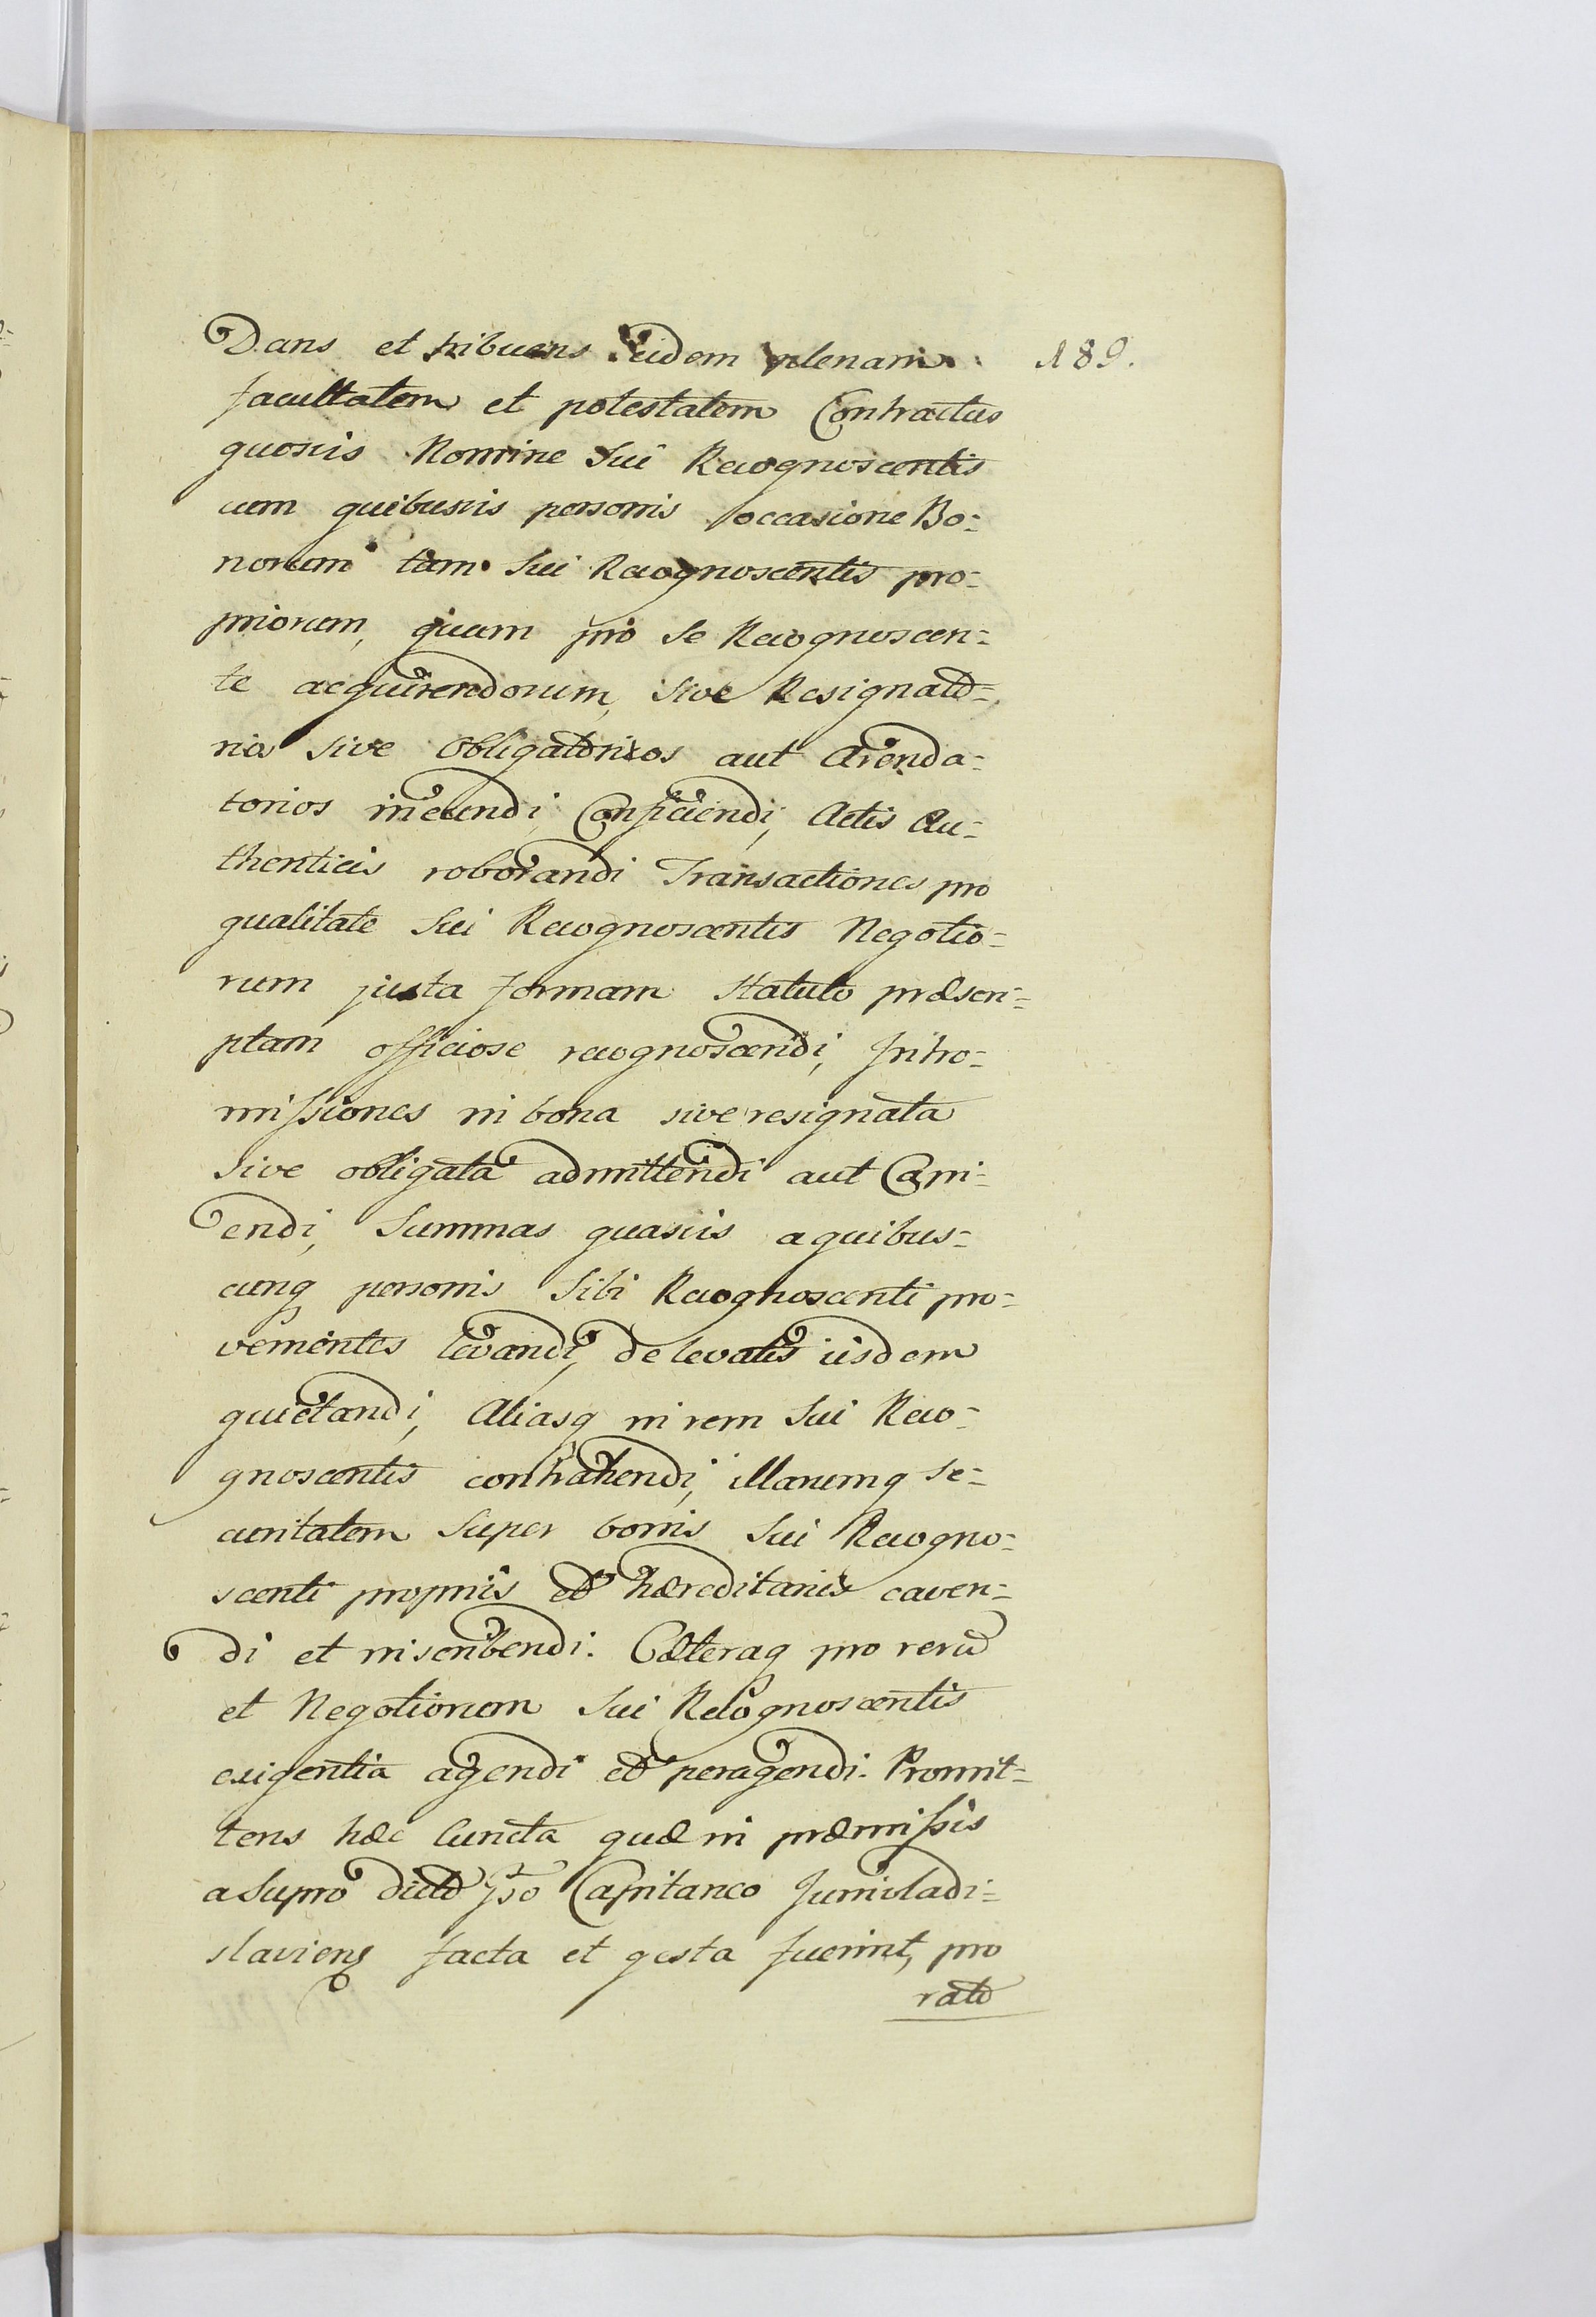 Dans et tribuens Eidem plenam 189.
facultatem et potestatem Contractus
quosvis Nomine Sui Recognoscentis
cum quibusvis personis occasione Bo=
norum tam Sui Recognoscentis pro=
priorum, quam pro se Recognoscen=
te acquirendorum, sive Resignato=
rios sive Obligatorios aut Arenda=
torios ineundi, Conficiendi, Actis Au=
thenticis roborandi Transactiones pro
qualitate Sui Recognoscentis Negotio=
rum juxta formam Statuto præscri=
ptam officiose recognoscendi, Intro=
missiones in bona sive resignata
sive obligata admittendi aut Capi=
endi, Summas quasvis a quibus=
cunq personis Sibi Recognoscenti pro=
venientes levandi, de levatis iisdem
quietandi, Aliasq in rem Sui Reco=
gnoscentis contrahendi, illarumq se=
curitatem super bonis Sui Recogno=
scenti propriis et hæreditariis caven=
di et inscribendi. Cæteraq pro rerũ
et Negotiorum Sui Recognoscentis
exigentia agendi et peragendi. Promit=
tens hæc Cuncta quæ in præmissis
a Supra dicto Capitaneo Juniuladi=
slaviens facta et gesta fuerint, pro
rato